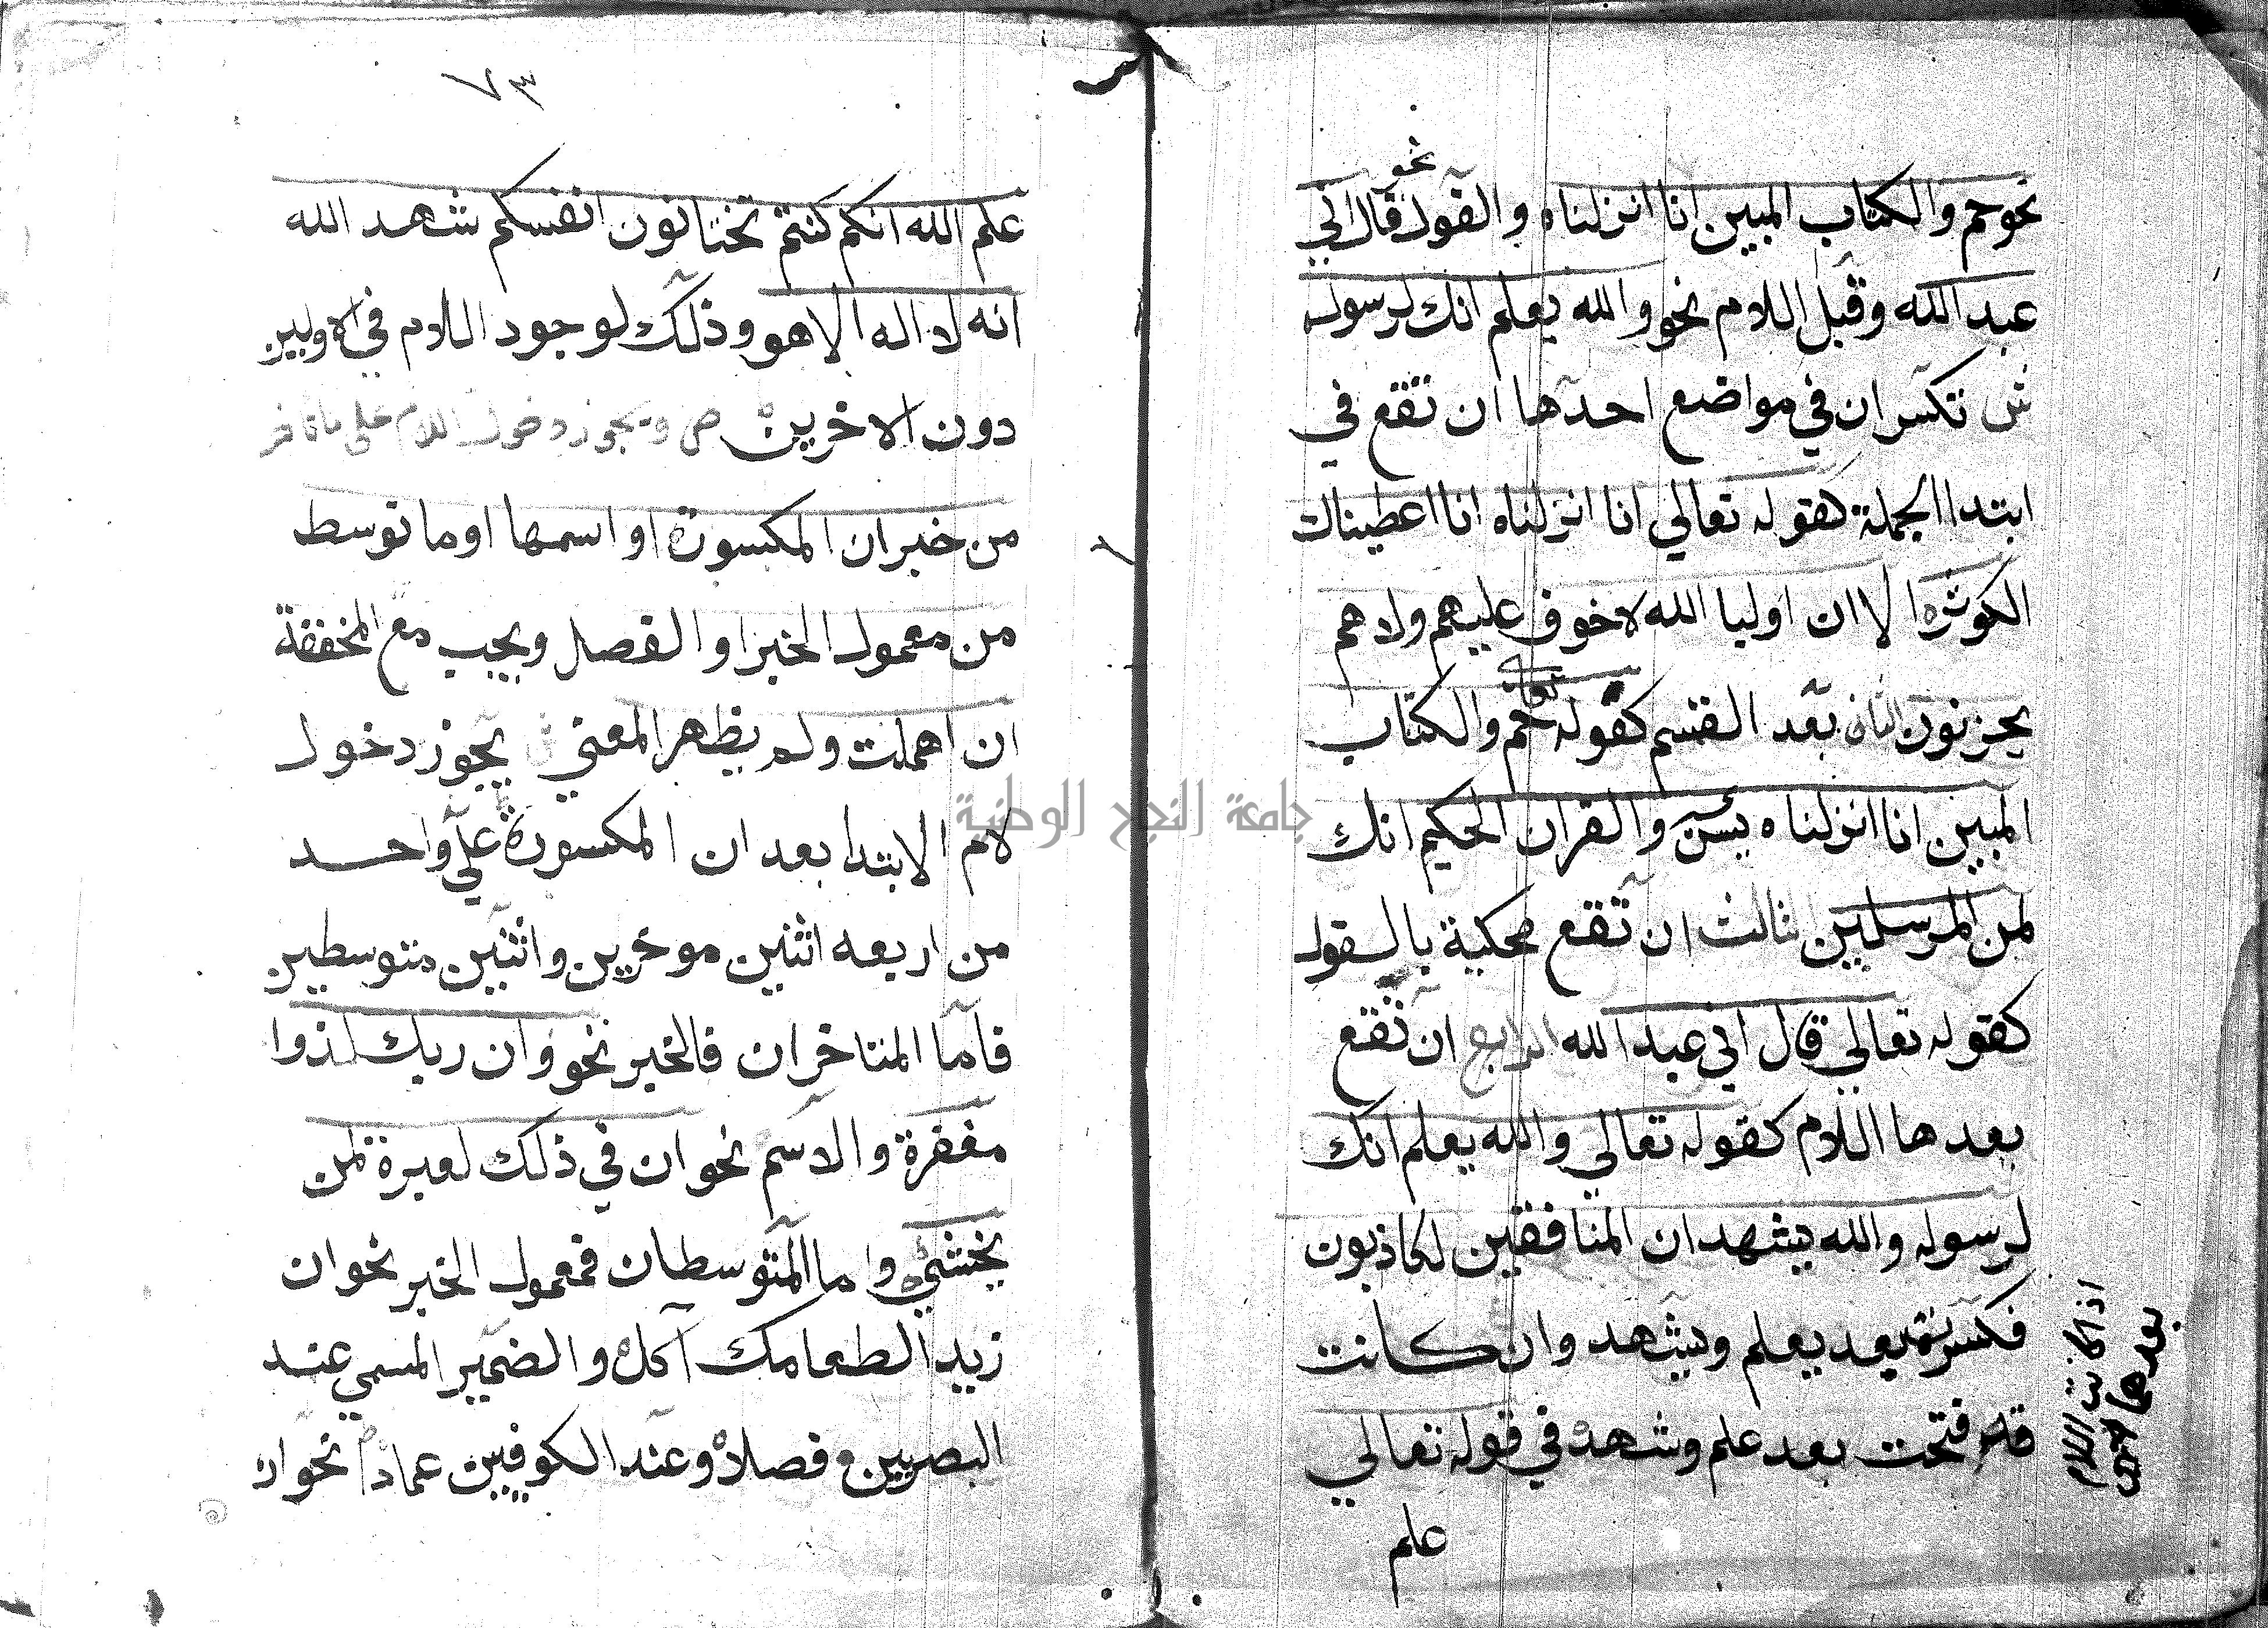 نحو
نحو حم والكتاب المبين انا انزلناه والقول قال اني
عبد الله وقبل اللام نحو والله يعلم انك لرسوله
ش تكسر ان في مواضع احدها ان تقع في
ابتدا الجملة كقوله تعالي انا انزلناه انا اعطيناك
الكوثر الا ان اوليا الله لا خوف عليهم ولا هم
يحزنون الثاني بعد القسم كقوله تعالي حم والكتاب
المبين انا انزلناه يس والقران الحكيم انك
لمن المرسلين الثالث ان تقع محكية بالقول
كقوله تعالي قال اني عبد الله الرابع ان تقع
بعدها اللام كقوله تعالي والله يعلم انك
لرسوله والله يشهد ان المنافقين لكاذبون
فكسرت بعد يعلم ويشهد وان كانت
قد فتحت بعد علم وشهد في قوله تعالي
علم
٧٣
علم الله انكم كنتم تختانون انفسكم شهد الله
انه لا اله الا هو وذلك لوجود اللام في الاولين
دون الاخرين ص ويجوز دخول اللام على ما تاخر
من خبر ان المكسورة او اسمها او ما توسط
من معمول الخبر او الفصل ويجب مع المخففة
ان اهملت ولم يظهر المعني ش يجوز دخول
لام الابتدا بعد ان المكسورة علي واحد
من اربعه اثنين موخرين واثنين متوسطين
فاما المتاخران فالخبر نحو وان ربك لذوا
مغفرة والاسم نحو ان في ذلك لعبرة لمن
يخشي واما المتوسطان فمعمول الخبر نحو ان
زيدا لطعامك آكل والضمير المسمي عند
البصريين فصلا وعند الكوفيين عمادا نحو ان
جامعة النجاح الوطنية